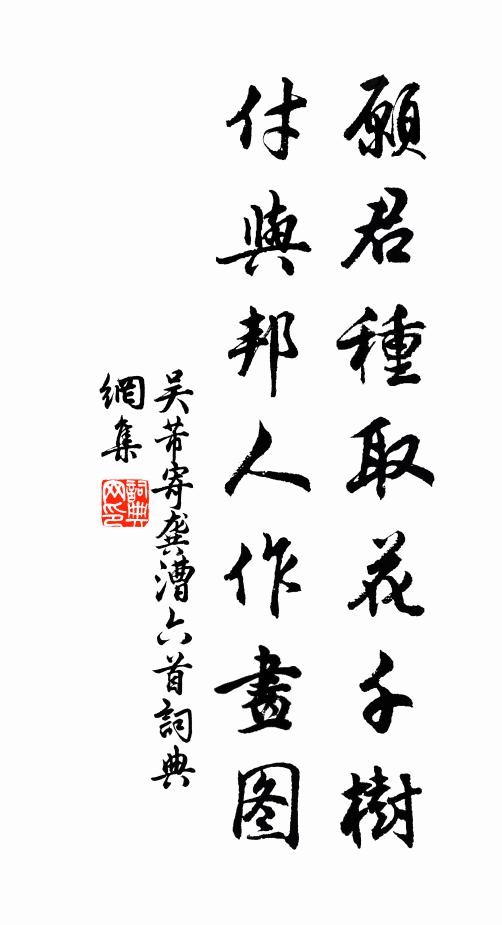 願君種取花千樹
付與邦人作畫图
吴芾寄龔漕六首詞典
網集
詞典网印